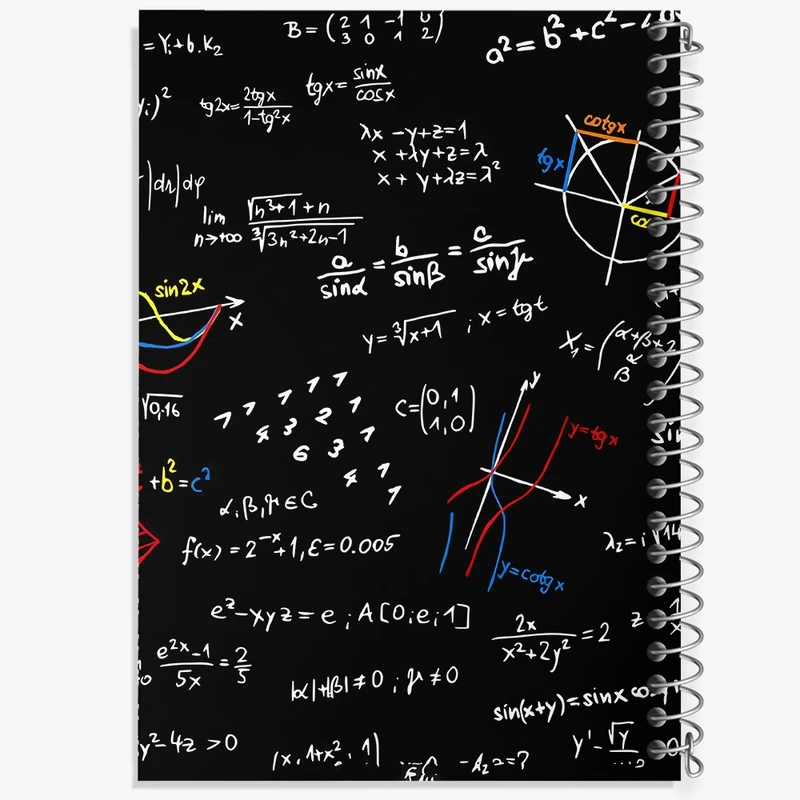 = Yᵢ + b.k₂
B = (2 1 -1 0
3 0 1 2)
a² = b² + c² -
tg2x = 2tgx / 1-tg²x
tgx = sinx / cosx
λx - y + z = 1
x + λy + z = λ
x + y + λz = λ²
cotgx
tgx
|dr|dφ
lim n→+∞ √n³+1 + n / ∛3n²+2n-1
a/sinα = b/sinβ = c/sinγ
sin2x
x
y = ∛x+1 ; x = tgt
X₁ = (α+β+2
β α
√0,16
1 1 1 1 1
4 3 2 1
6 3 1
4 1
1
C = (0,1
1,0)
y
y=tgx
x
y=cotgx
+b²=c²
α,β,γ ∈ C
f(x) = 2⁻ˣ+1, ε = 0.005
λ₂ = i√14
eᶻ - xyz = e ; A[0;e;1]
2x / x²+2y² = 2
e²ˣ-1 / 5x = 2/5
|α|+|β| ≠ 0 ; γ ≠ 0
sin(x+y) = sinx co
y² - 4z > 0
(x, 1+x², 1)
y' - √y